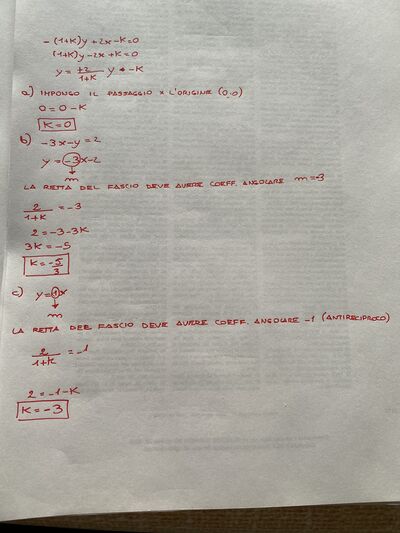 -(1+K)y+2x-K=0
(1+K)y-2x+K=0
y = +2/1+K y + -K
a) IMPONGO IL PASSAGGIO x L'ORIGINE (0,0)
0=0-K
K=0
b) -3x-y=2
y=-3x-2
m
LA RETTA DEL FASCIO DEVE AVERE COEFF. ANGOLARE m=-3
2/1+K = -3
2=-3-3K
3K=-5
K=-5/3
c) y=1x
m
LA RETTA DEL FASCIO DEVE AVERE COEFF. ANGOLARE -1 (ANTIRECIPROCO)
2/1+K = -1
2=-1-K
K=-3